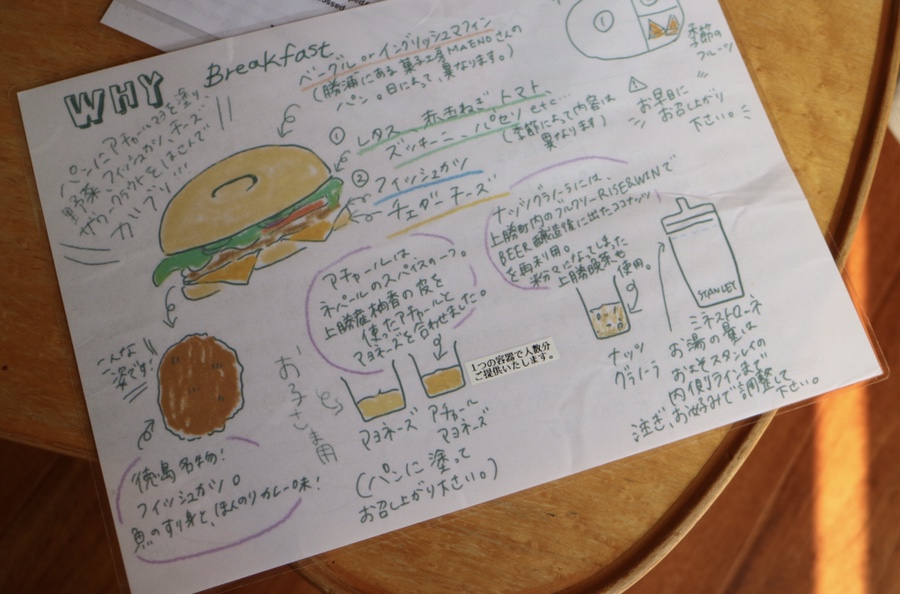 WHY
Breakfast
パンにアチャールマヨを塗り
野菜、フィッシュカツ、チーズ
ザワークラウトをはさんで
ガブリ!!!
ベーグル or イングリッシュマフィン
(勝浦にある菓子工房MaENOさんの
パン。日によって異なります。)
①
レタス、赤たまねぎ、トマト、
ズッキーニ、パセリ etc...
(季節によって内容は
異なります)
②
フィッシュカツ
チェダーチーズ
①
季節の
フルーツ
お早目に
お召し上がり
下さい。
ナッツグラノーラには、
上勝町内のブルワリーRISE&WINで
BEER醸造後に出たココナッツ
を再利用。
粉々になってしまった
上勝晩茶も
使用。
アチャールは
ネパールのスパイスの一つ。
上勝産柚香の皮を
使ったアチャールと
マヨネーズを合わせました。
こんな
姿です!!
徳島名物!
フィッシュカツ。
魚のすり身と、ほんのりカレー味!
おこさま用
マヨネーズ
アチャール
マヨネーズ
1つの容器で人数分
ご提供いたします。
(パンに塗って
お召し上がり下さい。)
ナッツ
グラノーラ
STANLEY
ミネストローネ
お湯の量は
およそスタンレイの
内側ラインまで
注ぎ、お好みで調整して
下さい。